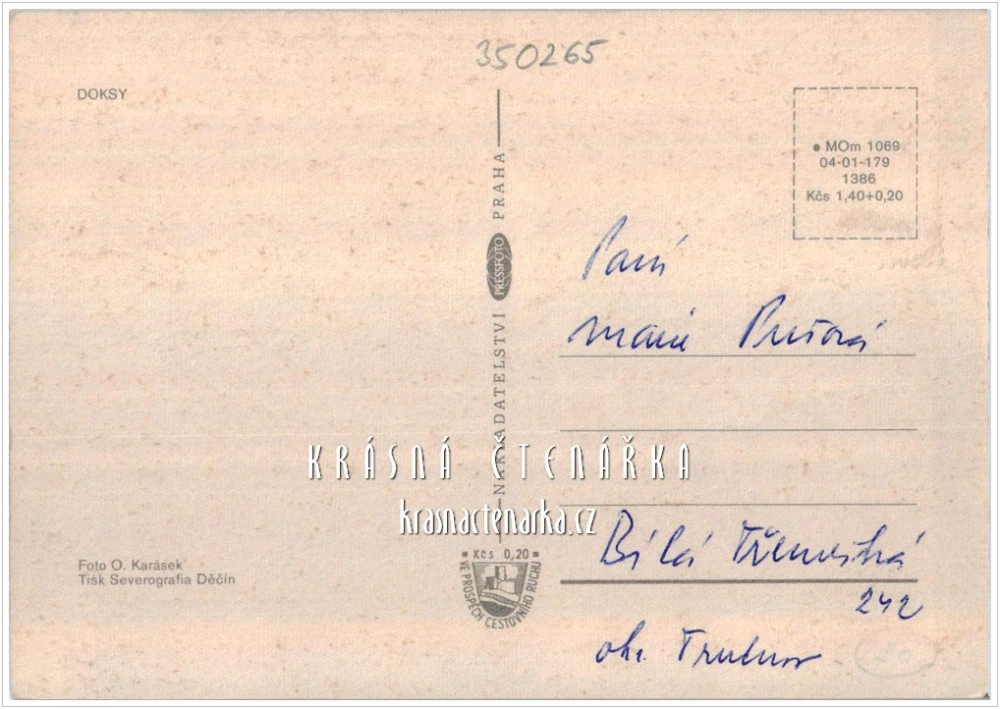 350265
DOKSY
• MOm 1069
04-01-179
1386
Kčs 1,40+0,20
NAKLADATELSTVÍ PRESSFOTO PRAHA
Paní
Marie
KRÁSNÁ ČTENÁŘKA
krasnactenarka.cz
Bílá Třemešná
242
okr. Trutnov
Foto O. Karásek
Tisk Severografia Děčín
Kčs 0,20
VE PROSPĚCH CESTOVNÍHO RUCHU